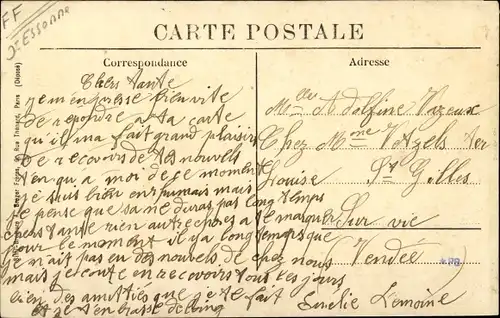 FF
Essonne
CARTE POSTALE
Correspondance
Adresse
Chers tante
je m'enpresse bien vite
de repondre a ta carte
qu'il ma fait grand plaisirs
De recevoir de tes nouvels
en qu a moi de ce moment
je suis bien enrhumais mais
je pense que sa ne duras pas long temps
chers tante rien autre choses a te marquer
pour le moment il i a longtemps que
je n'ait pas eu des nouvels de chez nous
mais je conte en recevoirs tous les jours
bien des amitiés que je te fait
et je t'en brasse de loing
Emelie Lemoine
Mlle Adolfine
Chez Mme
Louise St Gilles
Sur vie
Vendée
Frères, Rue Thénard, Paris